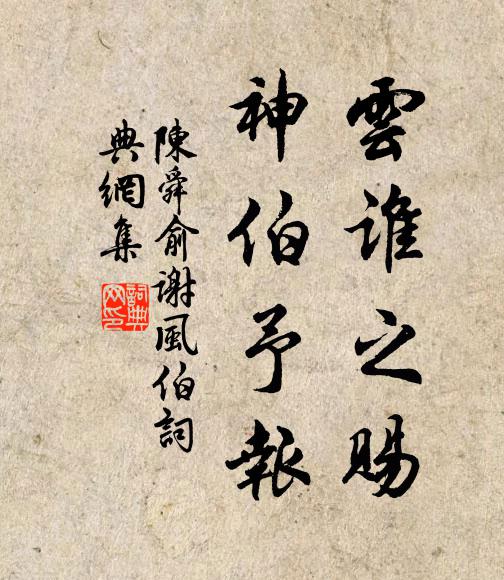 雲誰之賜
神伯予報
陳舜俞謝風伯詞
典網集
詞典網印